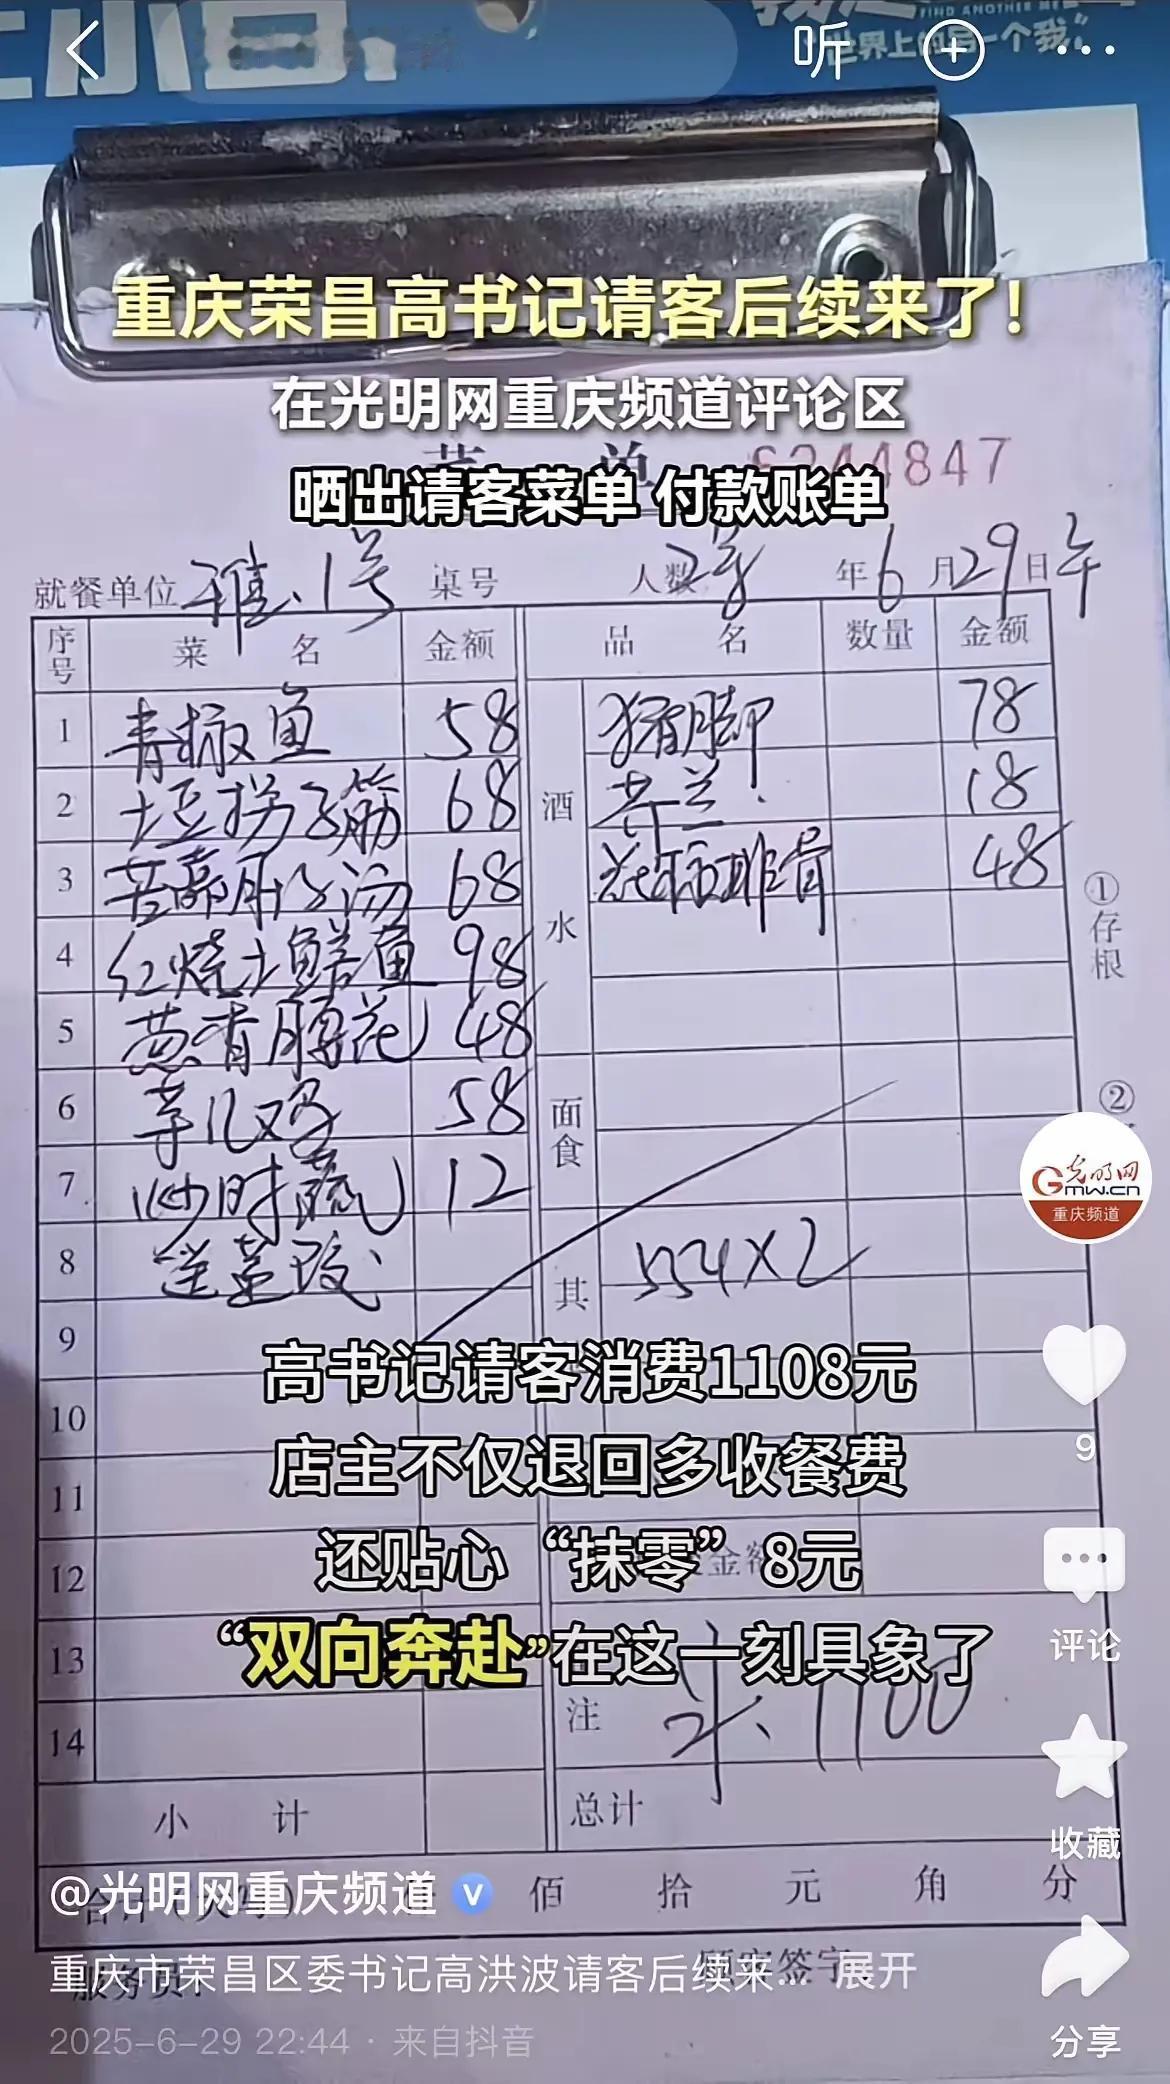 上小
FIND ANOTHER ME
世界上的另一个我"
听
重庆荣昌高书记请客后续来了！
在光明网重庆频道评论区
菜 单 6244847
晒出请客菜单 付款账单
就餐单位 雅.1号 桌号 人数 年6月29日午
序号 菜 名 金额 品 名 数量 金额
1 青椒鱼 58 猪脚 78
2 土豆拐子筋 68 酒 芥兰. 18
3 苦藠肝子汤 68 排骨 48
①存根
水
4 红烧土鳝鱼 98
5 葱香腰花 48
②
6 芋儿鸡 58 面食
7 炒时蔬 12
8 其 554×2
光明网
Gmw.cn
重庆频道
9
高书记请客消费1108元
10
9
店主不仅退回多收餐费
11
还贴心“抹零”8元
12 金额
“双向奔赴”在这一刻具象了
13
评论
注 1100
14
小 计 总计
收藏
@光明网重庆频道
佰 拾 元 角 分
重庆市荣昌区委书记高洪波请客后续来... 展开
服务员: 顾客签字
2025-6-29 22:44 · 来自抖音
分享